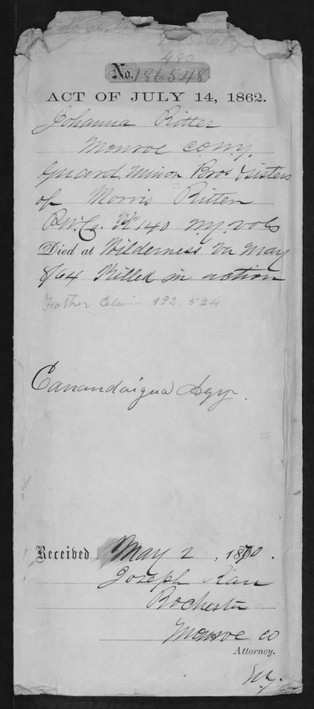 No. 186548
ACT OF JULY 14, 1862.
Johanna Ritter
Monroe Co Ny.
Guard. Minor Bros & Sisters
of Morris Ritter
Pri. Co. 140 Ny Vols
Died at Wilderness Va May
1864 Killed in action
Father Claim 192,524
Canandaigua Agy.
Received May 2, 1870.
Joseph
Rochester
Monroe Co
Attorney.
Ny.